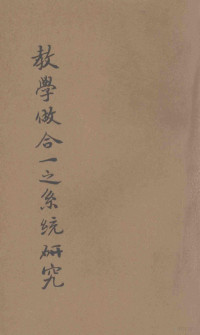 教學做合一之系統研究